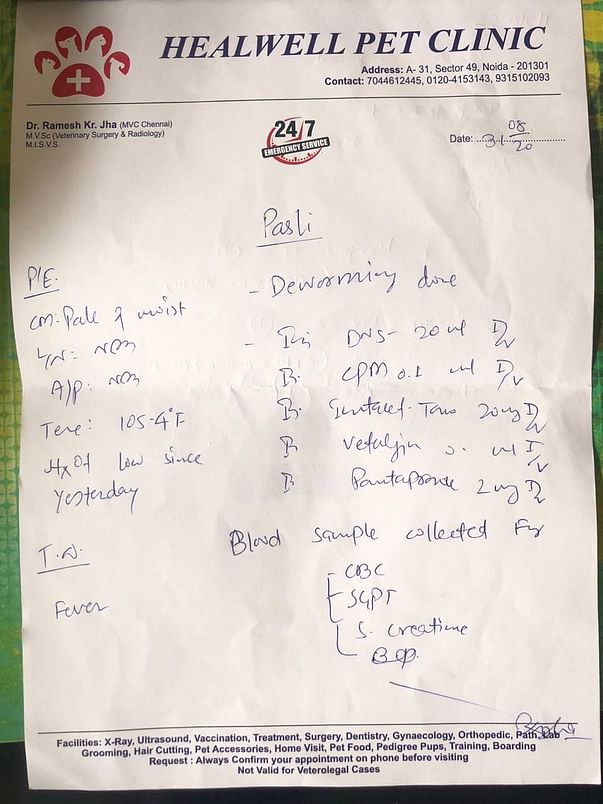 HEALWELL PET CLINIC
Address: A- 31, Sector 49, Noida - 201301
Contact: 7044612445, 0120-4153143, 9315102093
Dr. Ramesh Kr. Jha (MVC Chennai)
M.V.Sc (Veterinary Surgery & Radiology)
M.I.S.V.S.
24/7
EMERGENCY SERVICE
Date: 31 08/20
Pasli
P/E.
- Deworming done
CM: Pale & moist
L/N: NAD
- Inj DNS - 20 ml I/V
A/P: NAD
CPM 0.1 ml I/V
Temp: 105.4°F
Intacef-Tazo 20mg I/V
Hx of low since
ml I/V
Yesterday
2 mg I/V
T.D.
Blood sample collected For
- CBC
Fever
- SGPT
S. creatine
Facilities: X-Ray, Ultrasound, Vaccination, Treatment, Surgery, Dentistry, Gynaecology, Orthopedic, Path. Lab
Grooming, Hair Cutting, Pet Accessories, Home Visit, Pet Food, Pedigree Pups, Training, Boarding
Request : Always Confirm your appointment on phone before visiting
Not Valid for Veterolegal Cases